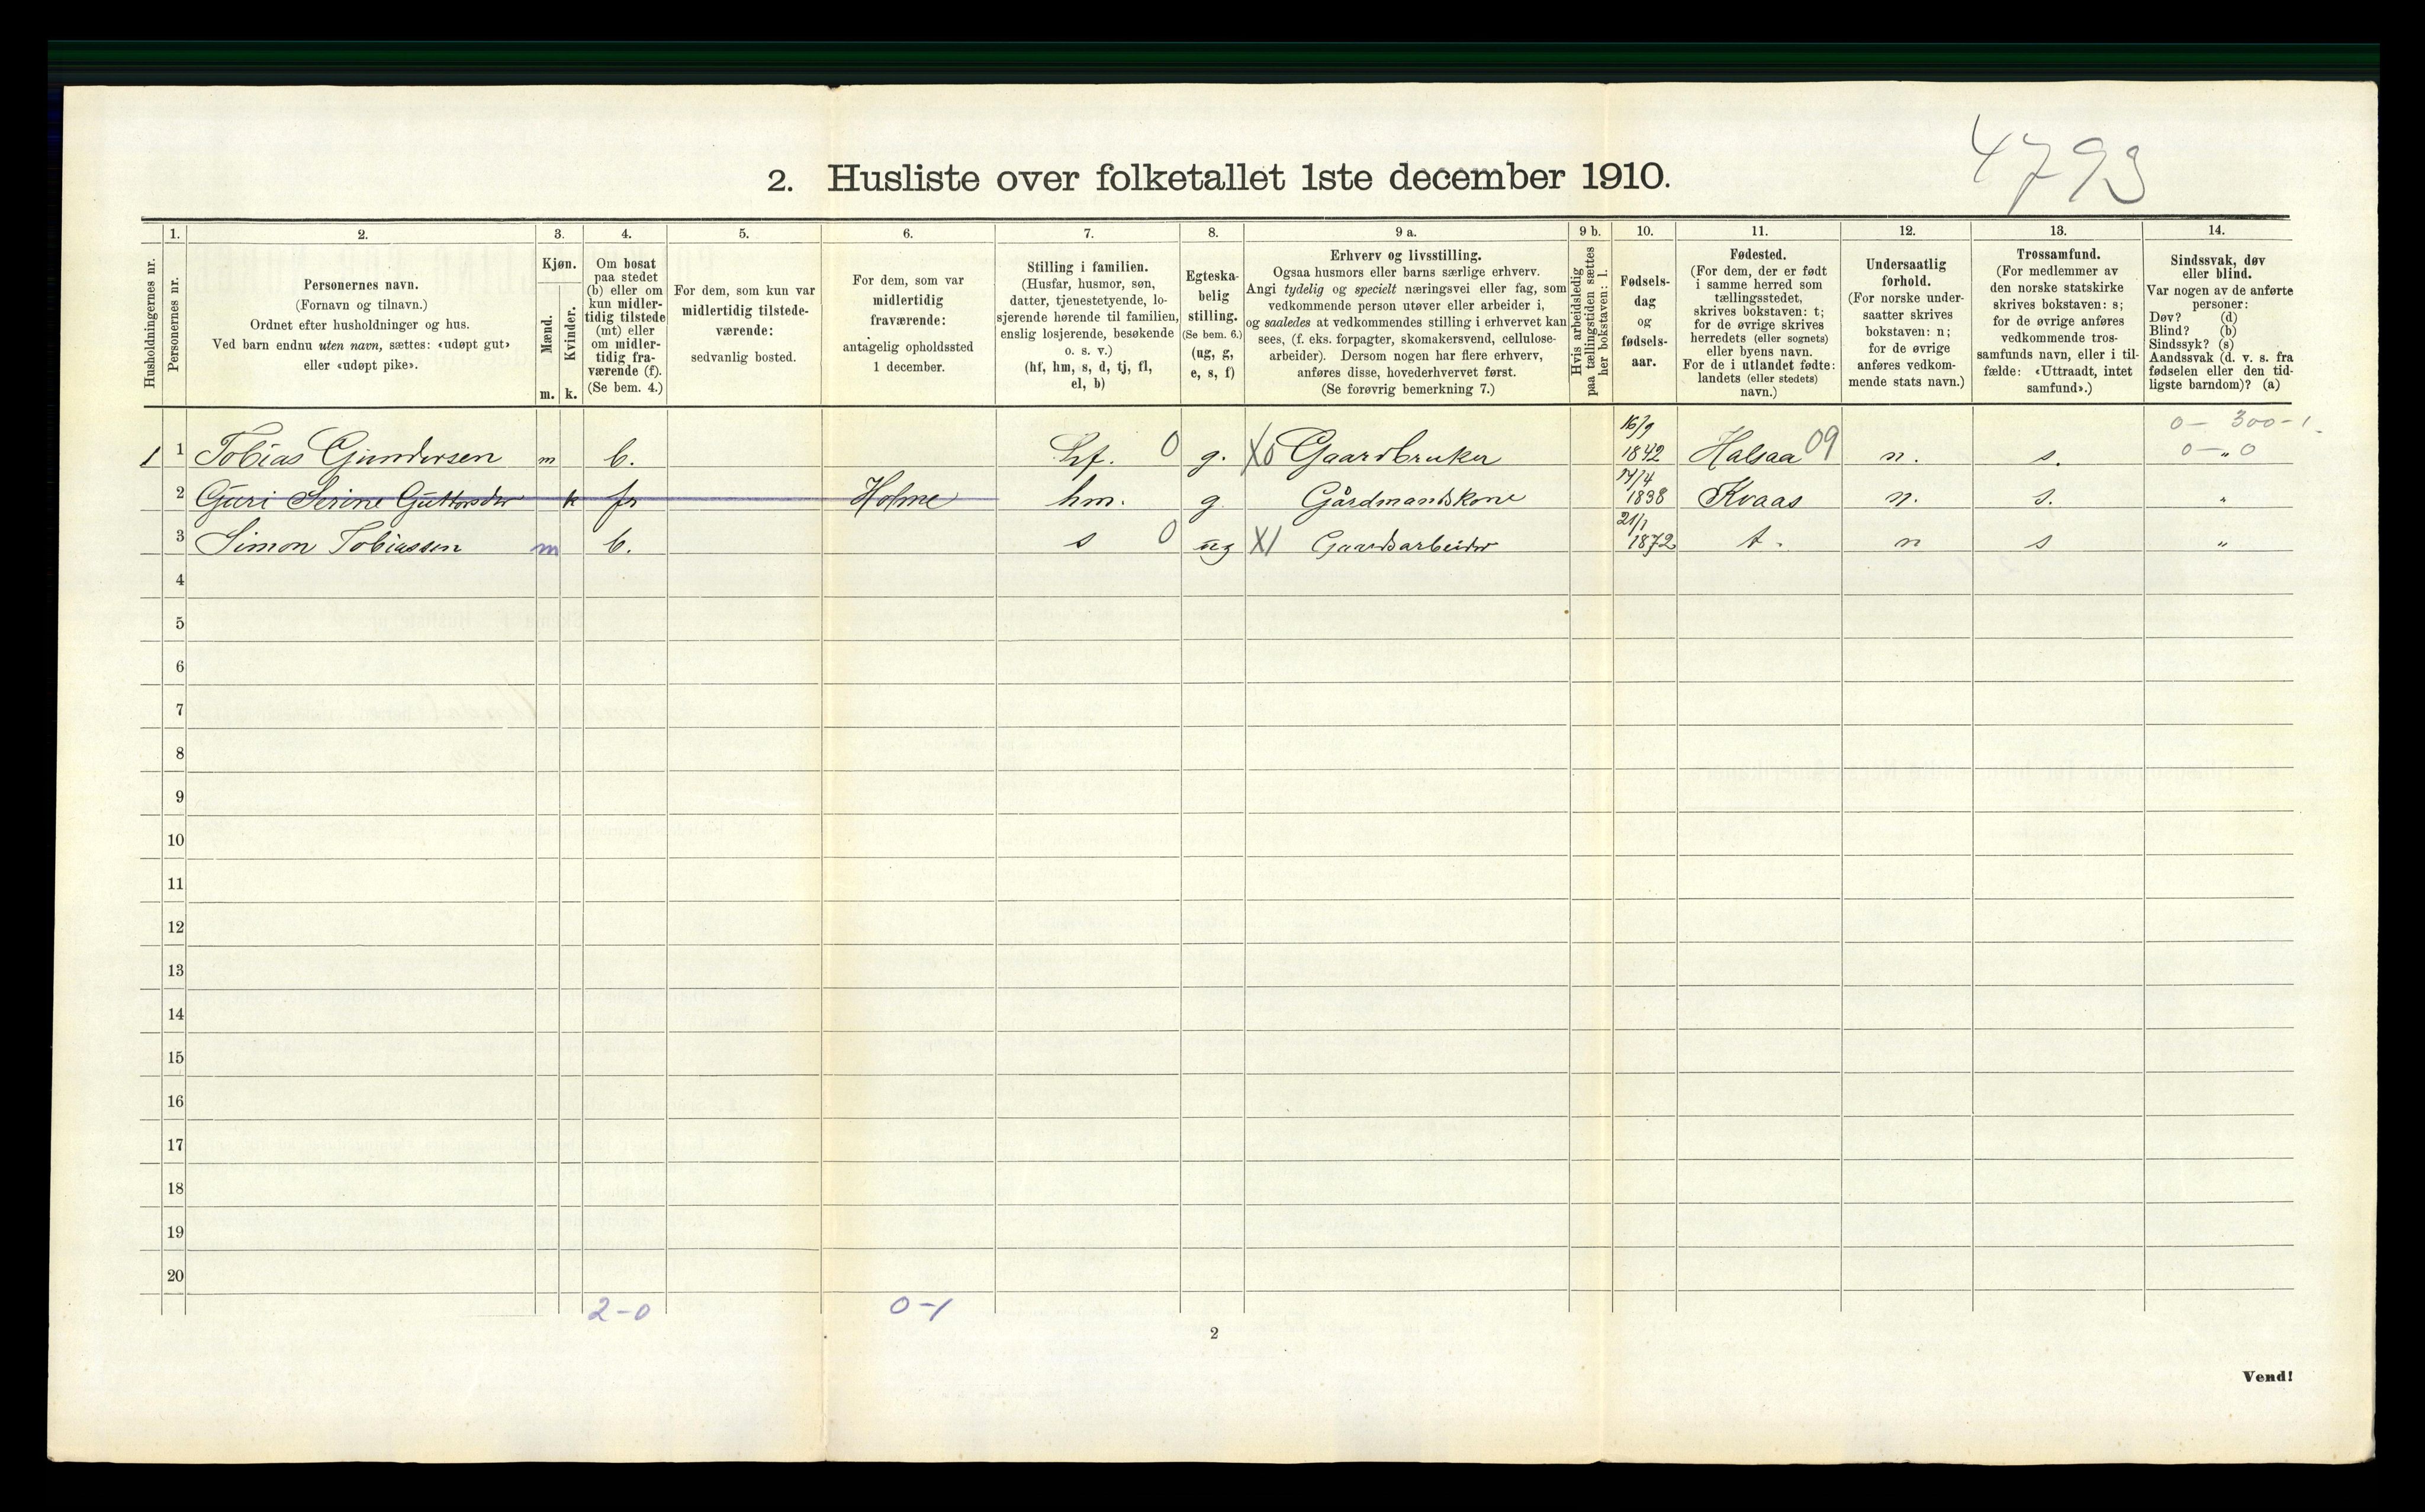 4793
2. Husliste over folketallet 1ste december 1910.
Husholdningernes nr.
1.
Personernes nr.
2.
Personernes navn.
(Fornavn og tilnavn.)
Ordnet efter husholdninger og hus.
Ved barn endnu uten navn, sættes: «udøpt gut»
eller «udøpt pike».
3.
Kjøn.
Mænd.
Kvinder.
m. k.
4.
Om bosat
paa stedet
(b) eller om
kun midler-
tidig tilstede
(mt) eller
om midler-
tidig fra-
værende (f).
(Se bem. 4.)
5.
For dem, som kun var
midlertidig tilstede-
værende:
sedvanlig bosted.
6.
For dem, som var
midlertidig
fraværende:
antagelig opholdssted
1 december.
7.
Stilling i familien.
(Husfar, husmor, søn,
datter, tjenestetyende, lo-
sjerende hørende til familien,
enslig losjerende, besøkende
o. s. v.)
(hf, hm, s, d, tj, fl,
el, b)
8.
Egteska-
belig
stilling.
(Se bem. 6.)
(ug, g,
e, s, f)
9 a.
Erhverv og livsstilling.
Ogsaa husmors eller barns særlige erhverv.
Angi tydelig og specielt næringsvei eller fag, som
vedkommende person utøver eller arbeider i,
og saaledes at vedkommendes stilling i erhvervet kan
sees, (f. eks. forpagter, skomakersvend, cellulose-
arbeider). Dersom nogen har flere erhverv,
anføres disse, hovederhvervet først.
(Se forøvrig bemerkning 7.)
9 b.
Hvis arbeidsledig
paa tællingstiden sættes
her bokstaven: l.
10.
Fødsels-
dag
og
fødsels-
aar.
11.
Fødested.
(For dem, der er født
i samme herred som
tællingsstedet,
skrives bokstaven: t;
for de øvrige skrives
herredets (eller sognets)
eller byens navn.
For de i utlandet fødte:
landets (eller stedets)
navn.)
12.
Undersaatlig
forhold.
(For norske under-
saatter skrives
bokstaven: n;
for de øvrige
anføres vedkom-
mende stats navn.)
13.
Trossamfund.
(For medlemmer av
den norske statskirke
skrives bokstaven: s;
for de øvrige anføres
vedkommende tros-
samfunds navn, eller i til-
fælde: «Uttraadt, intet
samfund».)
14.
Sindssvak, døv
eller blind.
Var nogen av de anførte
personer:
Døv? (d)
Blind? (b)
Sindssyk? (s)
Aandssvak (d. v. s. fra
fødselen eller den tid-
ligste barndom)? (a)
16/9 0 - 300 - 1
1 1 Tobias Gundersen m b. hf. 0 g. X0 Gaardbruker 1842 Halsaa 09 n. s. 0 - " 0
2 Guri Serine Guttorsdr k fr Holme hm. g Gårdmandskone 14/4 1838 Kvaas n. s. "
3 Simon Tobiassen m b. s 0 ug X1 Gaardsarbeider 21/1 1872 t. n s "
4
5
6
7
8
9
10
11
12
13
14
15
16
17
18
19
20
2-0 0-1
2
Vend!